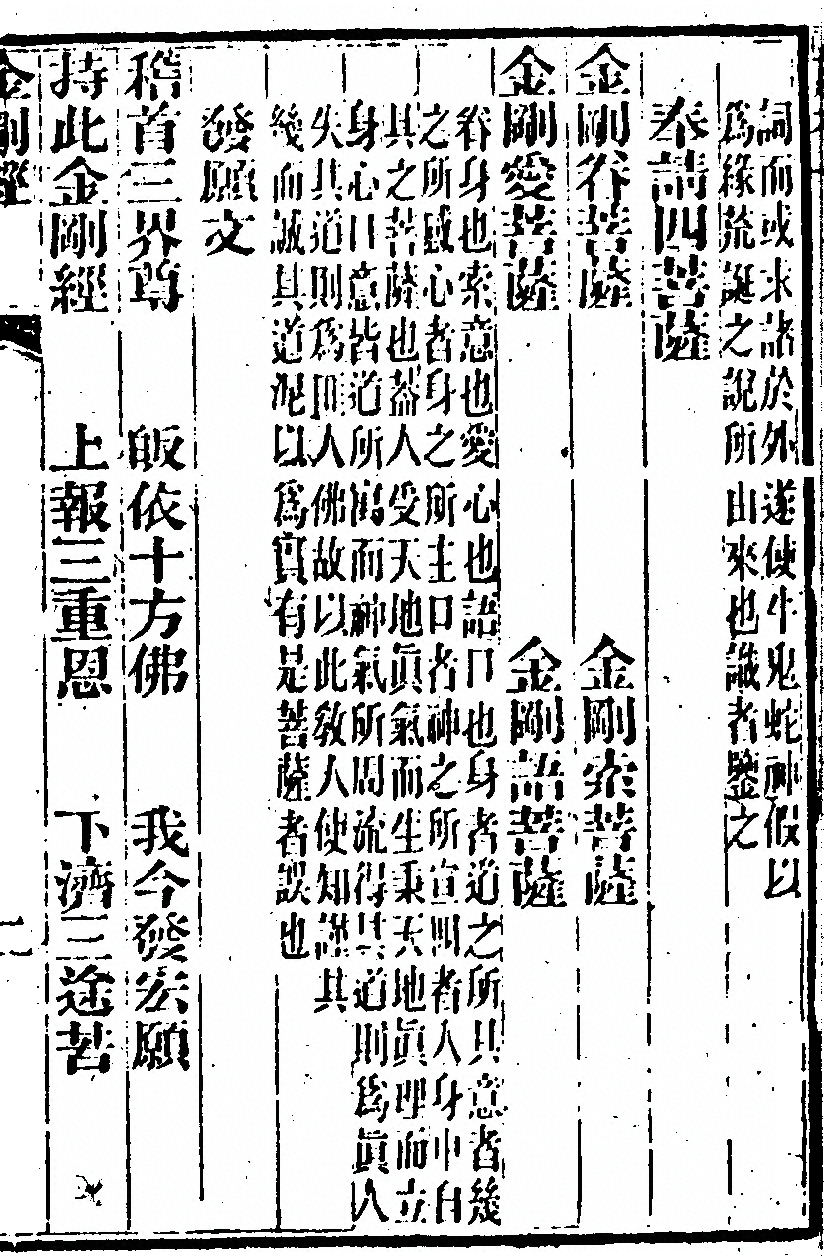 詞而或求諸於外遂使牛鬼蛇神假以
為緣荒誕之說所由來也識者鑒之
奉請四菩薩
金剛眷菩薩 金剛索菩薩
金剛愛菩薩 金剛語菩薩
眷身也索意也愛心也語口也身者道之所具意者幾
之所感心者身之所主口者神之所宣四者人身中自
其之菩薩也蓋人受天地眞氣而生秉天地眞理而立
身心口意皆道所寓而神氣所周流得其道則為眞人
失其道則為凡人佛故以此敎人使知謹其
幾而誠其道泥以為實有是菩薩者誤也
發願文
稽首三界尊 皈依十方佛 我今發宏願
持此金剛經 上報三重恩 下濟三途苦
金剛經
二